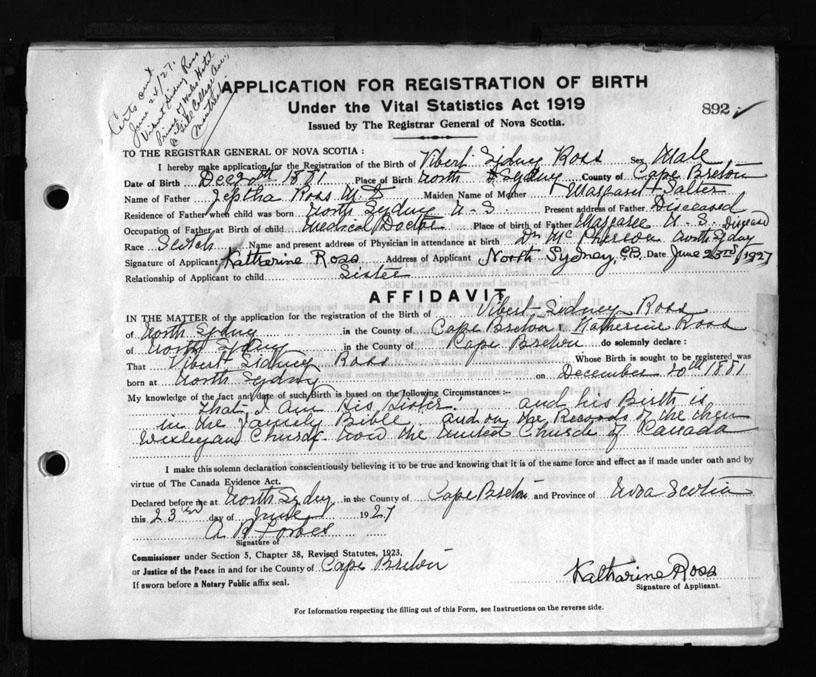 Certs out
June 24/27.
Vibert Sidney Ross
Hotel
College Ave.
APPLICATION FOR REGISTRATION OF BIRTH
Under the Vital Statistics Act 1919
892 ✓
Issued by The Registrar General of Nova Scotia.
TO THE REGISTRAR GENERAL OF NOVA SCOTIA :
I hereby make application for the Registration of the Birth of Vibert Sydney Ross Sex Male
Date of Birth Dec 20th 1881 Place of Birth North Sydney County of Cape Breton
Name of Father Jeptha Ross M.D Maiden Name of Mother Margaret Salter
Residence of Father when child was born North Sydney N.S. Present address of Father Diseased
Occupation of Father at Birth of child Medical Doctor Place of birth of Father Margaree N.S. Diseased
Race Scotch Name and present address of Physician in attendance at birth Dr McPherson North Sydney
Signature of Applicant Katharine Ross Address of Applicant North Sydney, C.B. Date June 23rd 1927
Relationship of Applicant to child Sister
AFFIDAVIT
IN THE MATTER of the application for the registration of the Birth of Vibert Sidney Ross
of North Sydney in the County of Cape Breton I Katherine Ross
of North Sydney in the County of Cape Breton do solemnly declare :
That Vibert Sidney Ross Whose Birth is sought to be registered was
born at North Sydney on December 20th 1881
My knowledge of the fact and date of such Birth is based on the following Circumstances :-
That I am His Sister and his Birth is
in the Family Bible and on the Records of the then
Wesleyan Church now the United Church of Canada
I make this solemn declaration conscientiously believing it to be true and knowing that it is of the same force and effect as if made under oath and by
virtue of The Canada Evidence Act.
Declared before me at North Sydney in the County of Cape Breton and Province of Nova Scotia
this 23rd day of June 1927
A. R. Forbes
Signature of
Commissioner under Section 5, Chapter 38, Revised Statutes, 1923.
or Justice of the Peace in and for the County of Cape Breton
If sworn before a Notary Public affix seal.
Katharine Ross
Signature of Applicant.
For Information respecting the filling out of this Form, see Instructions on the reverse side.